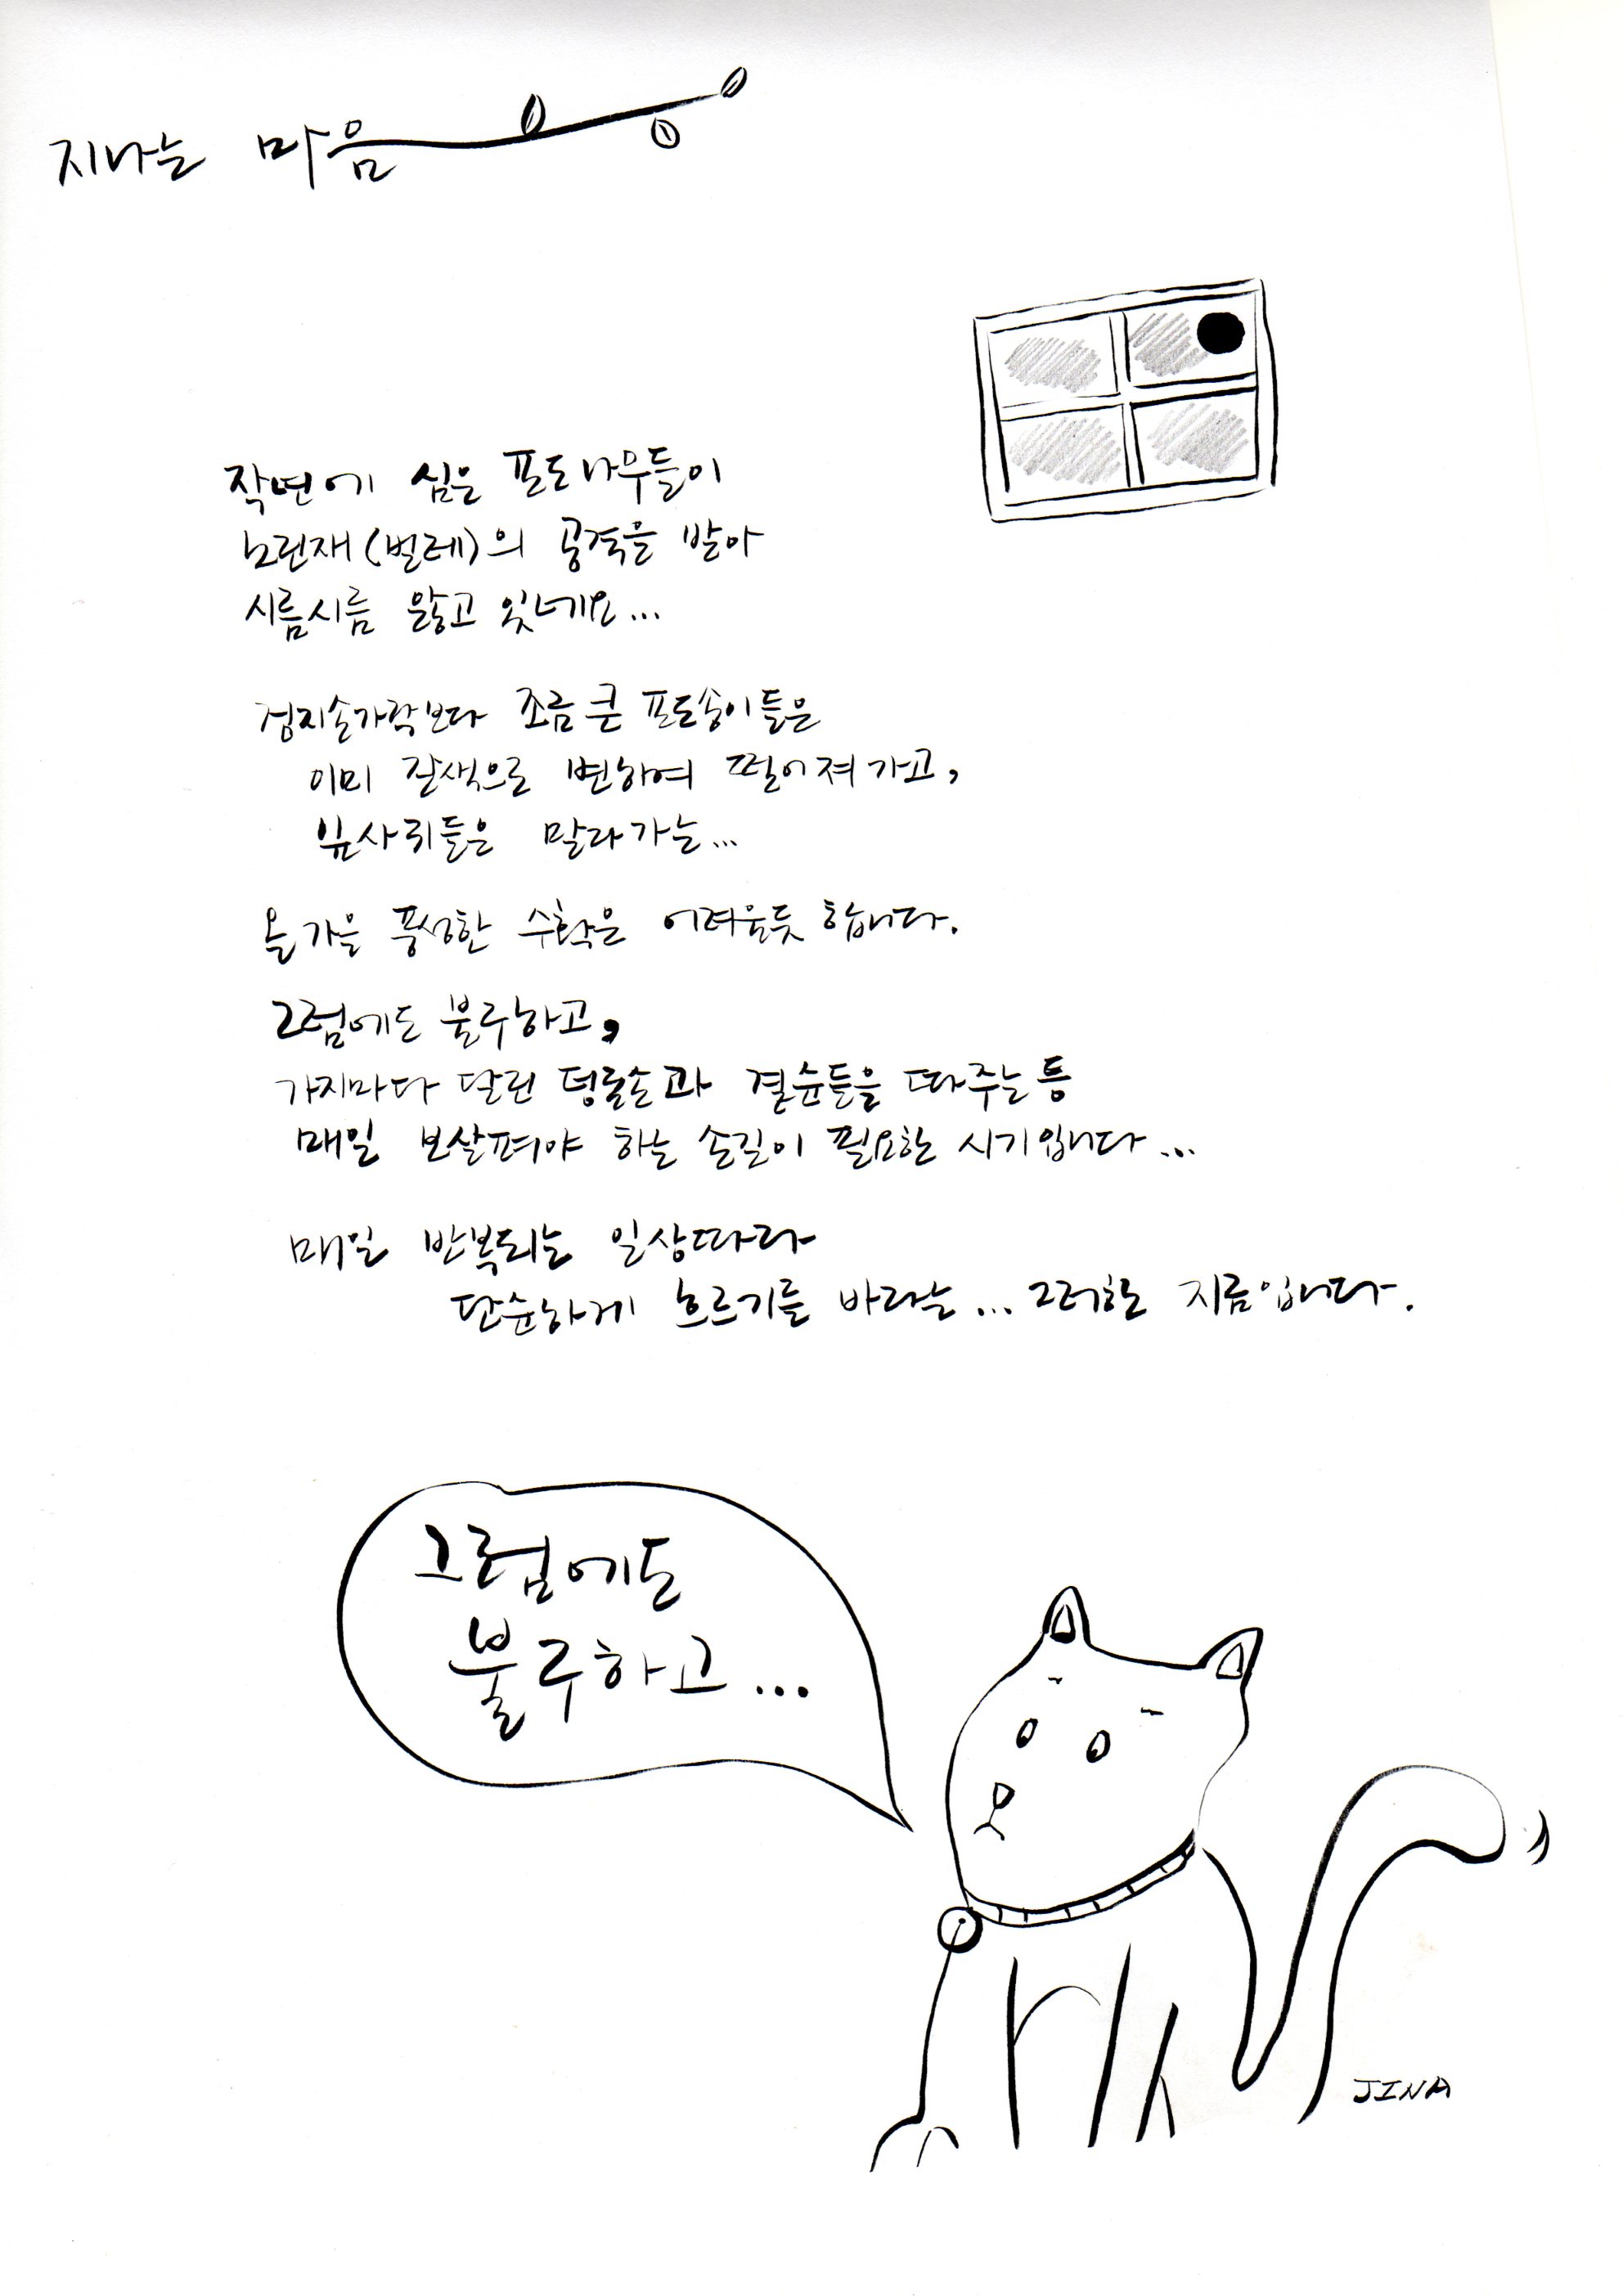 지나는 마음
작년에 심은 포도나무들이
노린재(벌레)의 공격을 받아
시름시름 앓고 있네요...
검지손가락보다 조금 큰 포도송이들은
이미 갈색으로 변하여 떨어져가고,
잎사귀들은 말라가는...
올 가을 풍성한 수확은 어려울듯 합니다.
그럼에도 불구하고,
가지마다 달린 덩굴손과 곁순들을 따주는 등
매일 보살펴야 하는 손길이 필요한 시기입니다...
매일 반복되는 일상따라
단순하게 흐르기를 바라는... 그러한 지금입니다.
그럼에도
불구하고...
JINA